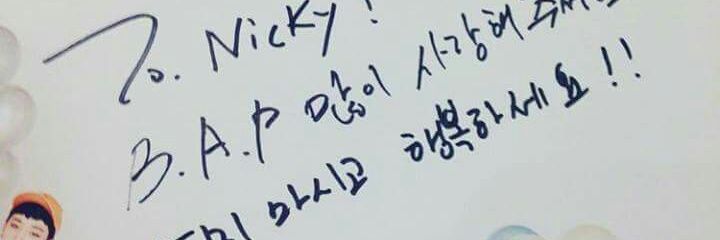 To. Nicky!
B.A.P 많이 사랑해
마시고 행복하세요!!